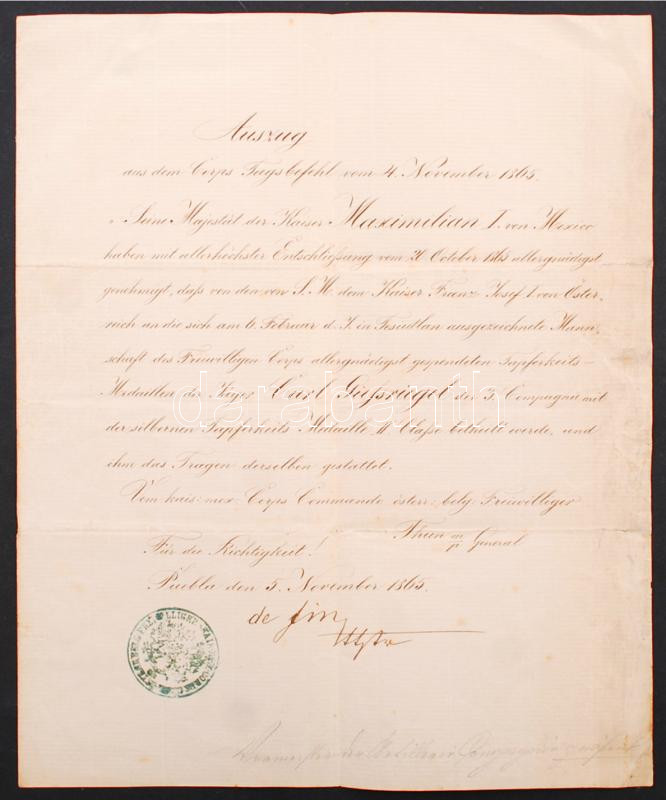 Auszug
aus dem Corps Tagsbefehl vom 4. November 1865.
„ Seine Majestät der Kaiser Maximilian I. von Mexico
haben mit allerhöchster Entschließung vom 20 October 1865 allergnädigst
genehmigt, daß von den von S. M. dem Kaiser Franz Josef I. von Öster-
reich an die sich am 6. Februar d. J. in Tesiutlan ausgezeichnete Mann-
schaft des Freiwilligen Corps allergnädigst gespendeten Tapferkeits-
Medaillen der Jäger Carl der 3. Compagnie mit
der silbernen Tapferkeits Medaille II Classe betheilt werde, und
ihm das Tragen derselben gestattet.
Vom kais: mex: Corps Commando österr: belg: Freiwilliger
Thun m/p General
Für die Richtigkeit!
Puebla den 5. November 1865.
de
darabanth